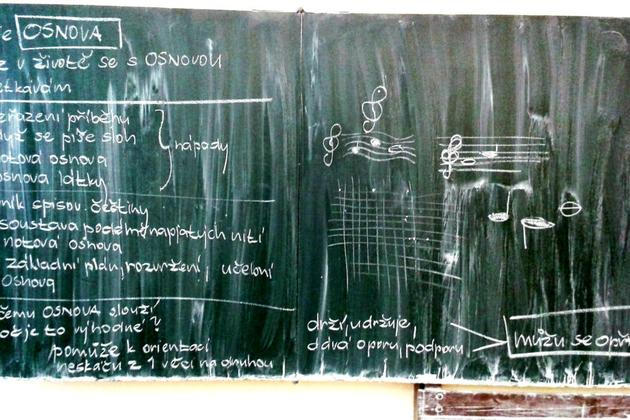 je OSNOVA
z v životě se s OSNOVOU
etkávám
eřazení příběhu
když se píše sloh
notová osnova
osnova látky
nápady
ník spisov. češtiny
soustava podélně napjatých nití
notová osnova
základní plán, rozvržení, učební
osnova
čemu OSNOVA slouží
oč je to výhodné?
pomůže k orientaci
neskáču z 1 věci na druhou
drží, udržuje,
dává oporu, podporu
můžu se opří